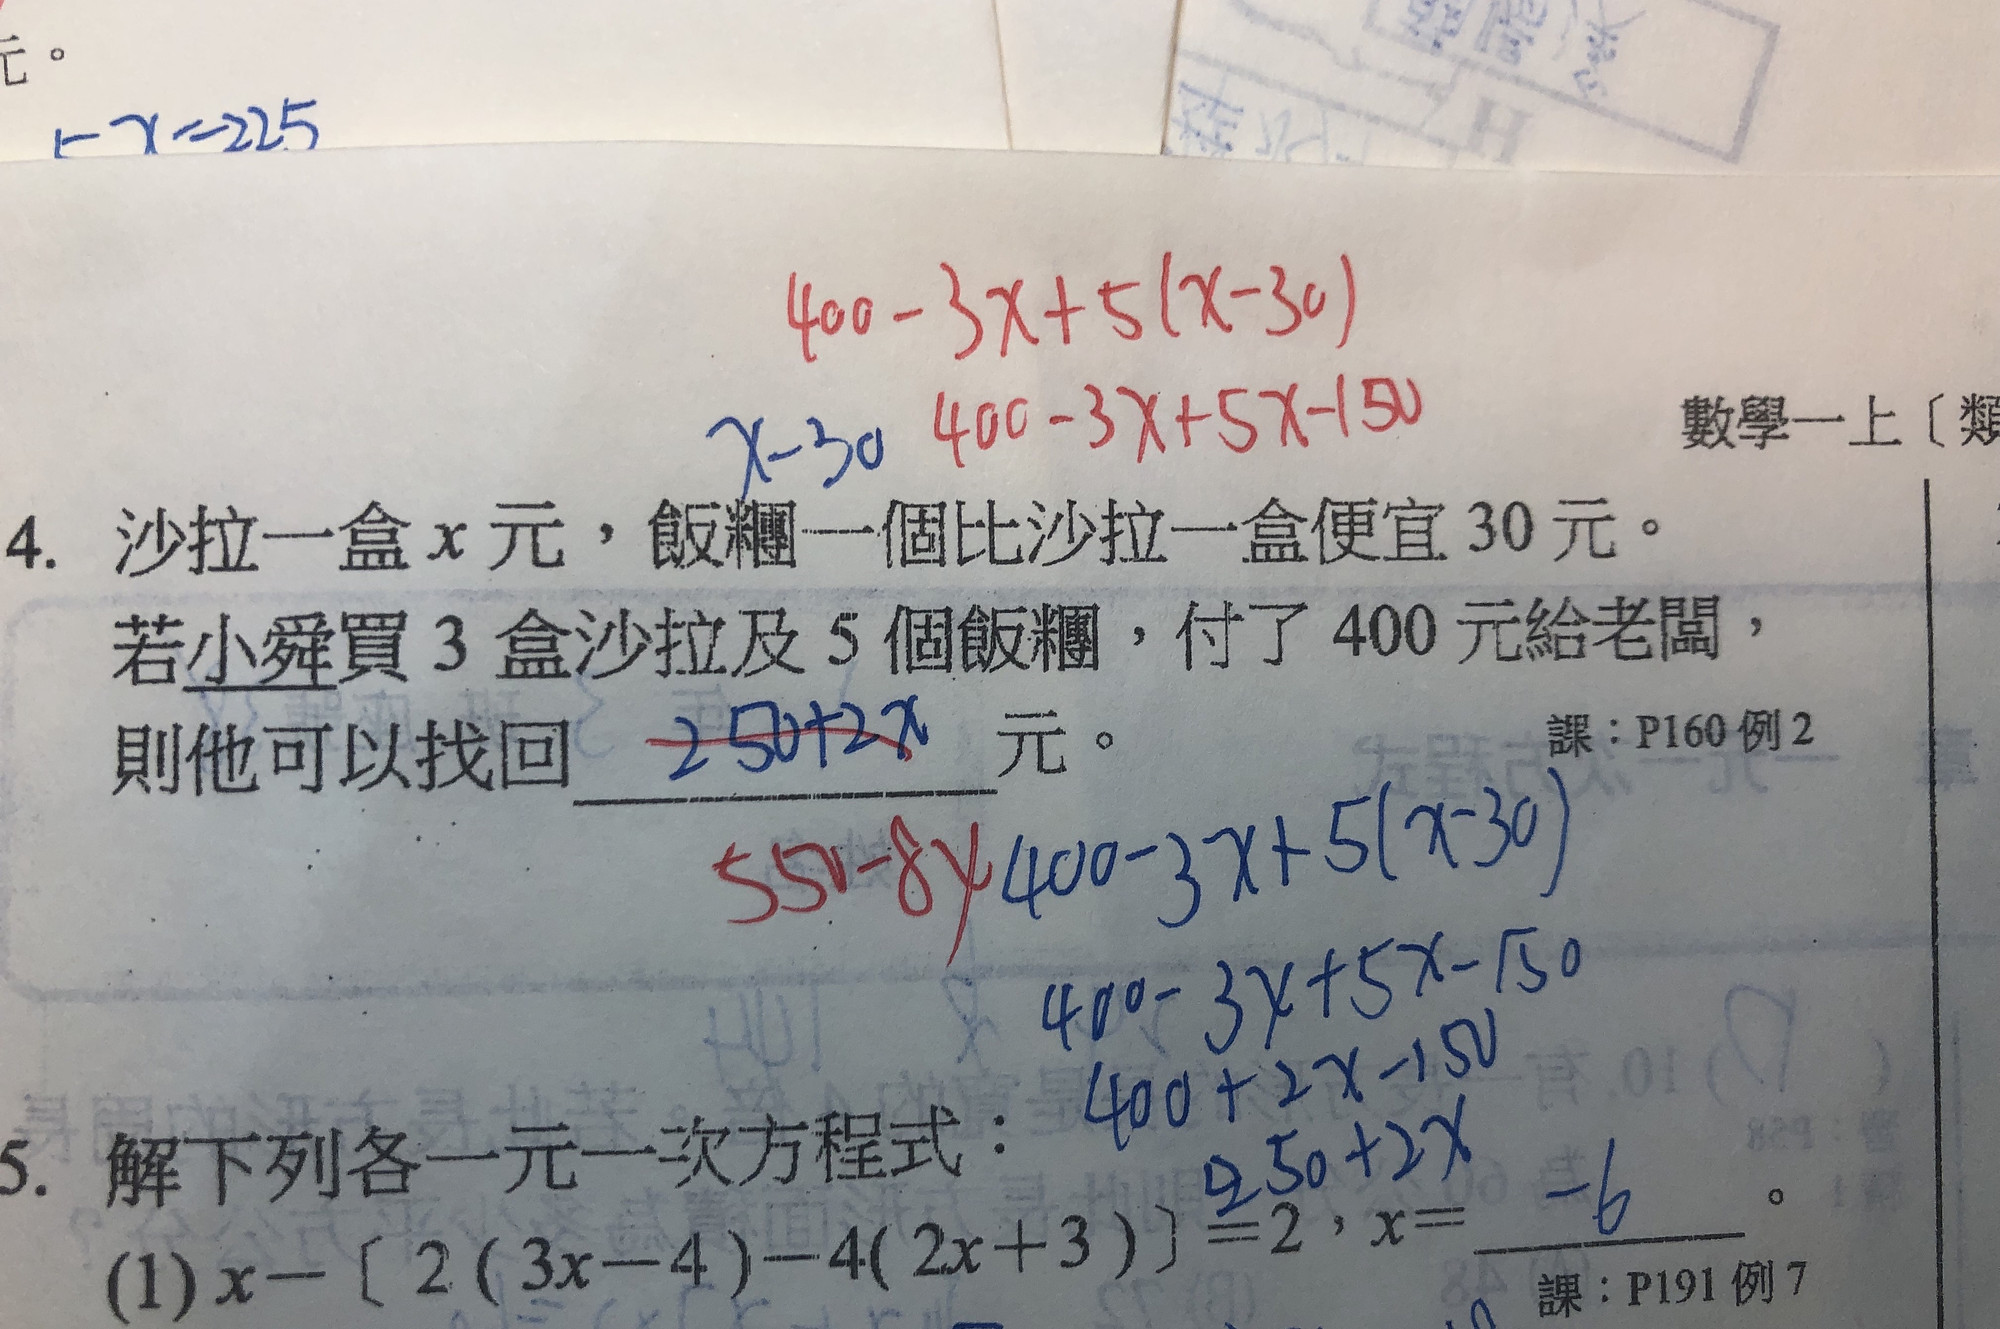 元。
-x=-225
400-3x+5(x-30)
x-30 400-3x+5x-150
數學一上〔類
4. 沙拉一盒 x 元，飯糰一個比沙拉一盒便宜 30 元。
若小舜買 3 盒沙拉及 5 個飯糰，付了 400 元給老闆，
則他可以找回 250+2x 元。
課：P160 例 2
550-8x 400-3x+5(x-30)
400-3x+5x-150
400+2x-150
250+2x
5. 解下列各一元一次方程式：
(1) x－〔 2 ( 3x－4 )－4( 2x＋3 )〕＝2，x＝ -6 。
課：P191 例 7